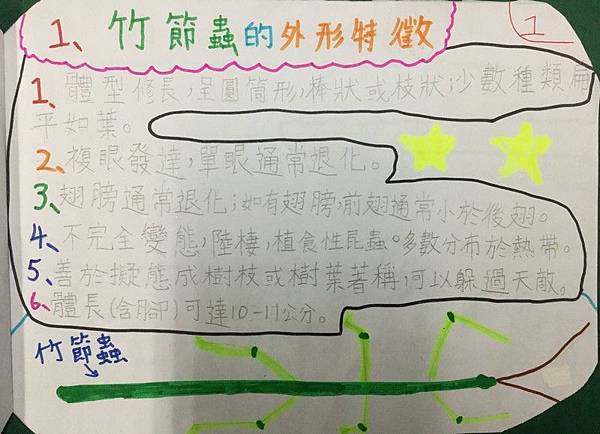 1
1、竹節蟲的外形特徵
1、體型修長,呈圓筒形,棒狀或枝狀;少數種類扁
平如葉。
2、複眼發達,單眼通常退化。
3、翅膀通常退化;如有翅膀,前翅通常小於後翅。
4、不完全變態,陸棲,植食性昆蟲。多數分布於熱帶。
5、善於擬態成樹枝或樹葉著稱,可以躲過天敵。
6、體長(含腳)可達10-11公分。
竹節蟲